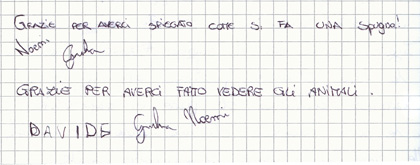 GRAZIE PER AVERCI SPIEGATO COME SI FA UNA SPUGNA!
Noemi Giulia
GRAZIE PER AVERCI FATTO VEDERE GLI ANIMALI.
DAVIDE Giulia Noemi